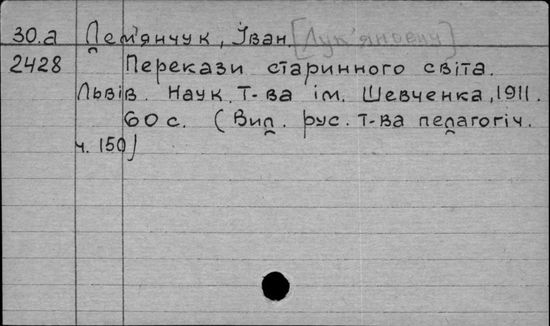 30.а Дем'янчук, Іван. [Лук'янович]
2428 Перекази старинного світа.
Львів. Наук. т-ва ім. Шевченка, 1911.
60 с. (Вид. рус. т-ва педагогіч.
ч. 150)